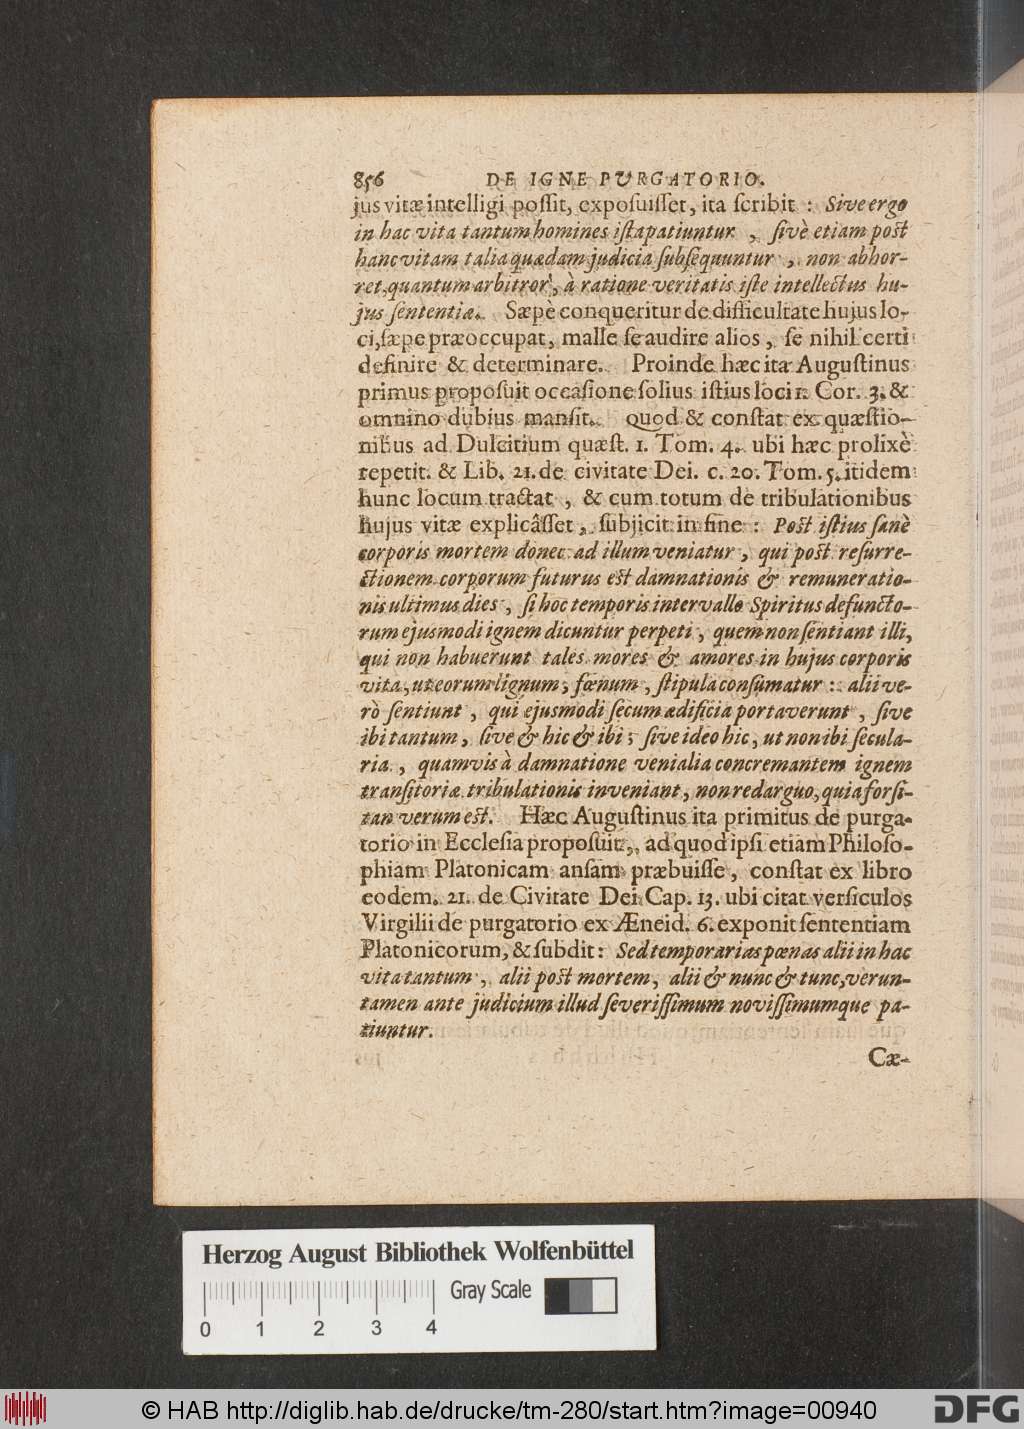 856 DE IGNE PURGATORIO.
jus vitæ intelligi poſſit, expoſuiſſet, ita ſcribit : Sive ergo
in hac vita tantum homines iſta patiuntur , ſivè etiam poſt
hanc vitam talia quædam judicia ſubſequuntur , non abhor-
ret, quantum arbitror, à ratione veritatis iſte intellectus hu-
jus ſententiæ. Sæpè conqueritur de difficultate hujus lo-
ci, ſæpe præoccupat, malle ſe audire alios, ſe nihil certi
definire & determinare. Proinde hæc ita Auguſtinus
primus propoſuit occaſione ſolius iſtius loci 1. Cor. 3. &
omnino dubius manſit. quod & conſtat ex quæſtio-
nibus ad Dulcitium quæſt. 1. Tom. 4. ubi hæc prolixè
repetit. & Lib. 21. de civitate Dei. c. 20. Tom. 5. itidem
hunc locum tractat , & cum totum de tribulationibus
hujus vitæ explicâſſet, ſubjicit in fine : Poſt iſtius ſanè
corporis mortem donec ad illum veniatur , qui poſt reſurre-
ctionem corporum futurus eſt damnationis & remuneratio-
nis ultimus dies , ſi hoc temporis intervallo Spiritus defuncto-
rum ejusmodi ignem dicuntur perpeti , quem non ſentiant illi,
qui non habuerunt tales mores & amores in hujus corporis
vita, ut eorum lignum, fœnum , ſtipula conſumatur : alii ve-
rò ſentiunt , qui ejusmodi ſecum ædificia portaverunt , ſive
ibi tantum, ſive & hic & ibi ; ſive ideo hic, ut non ibi ſecula-
ria , quamvis à damnatione venialia concremantem ignem
tranſitoriæ tribulationis inveniant, non redarguo, quia forſi-
tan verum eſt. Hæc Auguſtinus ita primitus de purga-
torio in Eccleſia propoſuit, ad quod ipſi etiam Philoſo-
phiam Platonicam anſam præbuiſſe, conſtat ex libro
eodem. 21. de Civitate Dei Cap. 13. ubi citat verſiculos
Virgilii de purgatorio ex Æneid. 6. exponit ſententiam
Platonicorum, & ſubdit : Sed temporarias pœnas alii in hac
vita tantum , alii poſt mortem, alii & nunc & tunc, verun-
tamen ante judicium illud ſeveriſſimum noviſſimumque pa-
tiuntur.
Cæ-
Herzog August Bibliothek Wolfenbüttel
Gray Scale
0 1 2 3 4
© HAB http://diglib.hab.de/drucke/tm-280/start.htm?image=00940
DFG